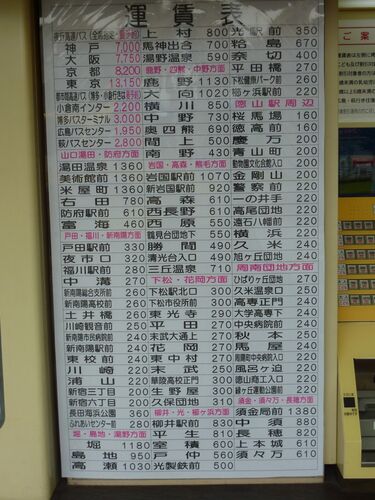 運賃表
夜行高速バス(全席指定・要予約)
神戸 7,000
大阪 7,750
京都 8,200
東京 13,150
都市間高速バス(博多・小倉引野は予約制)
小倉南インター 2,200
博多バスターミナル 3,000
広島バスセンター 1,950
萩バスセンター 2,800
山口湯田・防府方面
湯田温泉 1360
美術館前 1360
米屋町 1360
右田 780
防府駅前 610
富海 460
戸田・福川・新南陽方面
戸田駅前 330
夜市口 320
福川駅前 280
中溝 270
新南陽総合支所前 260
土井橋 260
川崎観音前 250
新南陽市民病院前 240
新南陽駅前 240
東校前 240
川崎 220
浦山 220
新宿三丁目 200
新宿六丁目 200
長田海浜公園 360
ふれあいセンター前 280
堀・島地・湯野方面
堀 1180
島地 950
高瀬 1030
上村 800
馬神出合 700
湯野 590
鹿野・四熊・中野方面
鹿野 1130
大向 1020
横川 850
中野 730
奥四熊 690
間上 500
南野 430
岩国・高森・熊毛方面
岩国駅前 1070
新岩国駅 920
高森 610
西長野 610
西原 550
鶴見台団地下 500
勝間 490
清光台入口 490
三丘温泉 710
下松・花岡方面
下松駅北口 300
下松市役所前 300
東光寺 290
平田 270
末武大通上 270
花岡 270
東中村 270
末武 250
華陵高校正門 300
生野屋 300
久保団地 300
柳井・光・櫛ヶ浜方面
柳井駅前 830
平生 810
室積 600
戸仲 560
光製鉄前 500
光駅前 350
粭島 670
奈切 400
平田橋 270
下松健康パーク前 260
櫛ヶ浜駅前 220
徳山駅周辺
桜馬場 160
徳高前 160
慶万 200
青山町 200
動物園文化会館入口 200
金剛山 200
警察前 220
一の井手 220
高尾団地 220
遠石八幡前 220
横浜 220
久米 240
旭ヶ丘団地 240
周南団地方面
ひばりヶ丘団地 220
久米温泉口 250
高専正門 240
大学高専下 240
中央病院前 240
秋本 250
馬屋 240
周南町中央病院入口 220
風呂ヶ迫 220
徳山商工入口 220
緑ヶ丘運動公園前 220
須金・須々万・長穂方面
須金局前 1380
中須 880
長穂 820
上本城 610
須々万 610